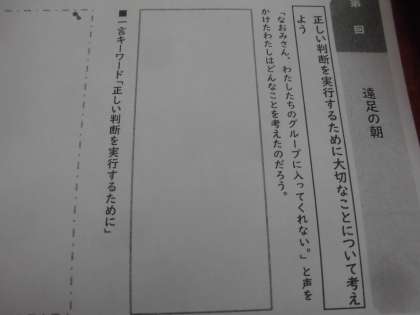 第 回
遠足の朝
正しい判断を実行するために大切なことについて考え
よう
「なおみさん、わたしたちのグループに入ってくれない。」と声を
かけたわたしはどんなことを考えたのだろう。
■一言キーワード「正しい判断を実行するために」